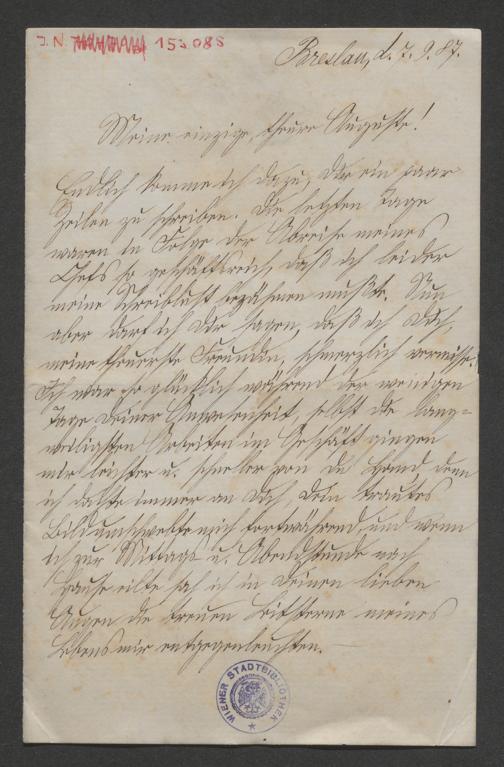 J. N. 153088
Breslau, d. 7. 9. 87.
Meine einzige, theure Auguste!
Endlich komme ich dazu, Dir ein paar
Zeilen zu schreiben. Die letzten Tage
waren in Folge der Abreise meines
Chefs so geschäftsreich, daß ich leider
meine Schreiblust bezähmen mußte. Nun
aber darf ich Dir sagen, daß ich Dich,
meine theuerste Freundin, schmerzlich vermisse.
Ich war so glücklich während der wenigen
Tage Deiner Anwesenheit, selbst die lang-
weiligsten Arbeiten im Geschäft gingen
mir leichter u. schneller von der Hand, denn
ich dachte immer an Dich, Dein trautes
Bild umschwebte mich fortwährend, und wenn
ich zur Mittags u. Abendstunde nach
Hause eilte sah ich in Deinen lieben
Augen die treuen Leitsterne meines
Lebens mir entgegenleuchten. —
WIENER STADTBIBLIOTHEK